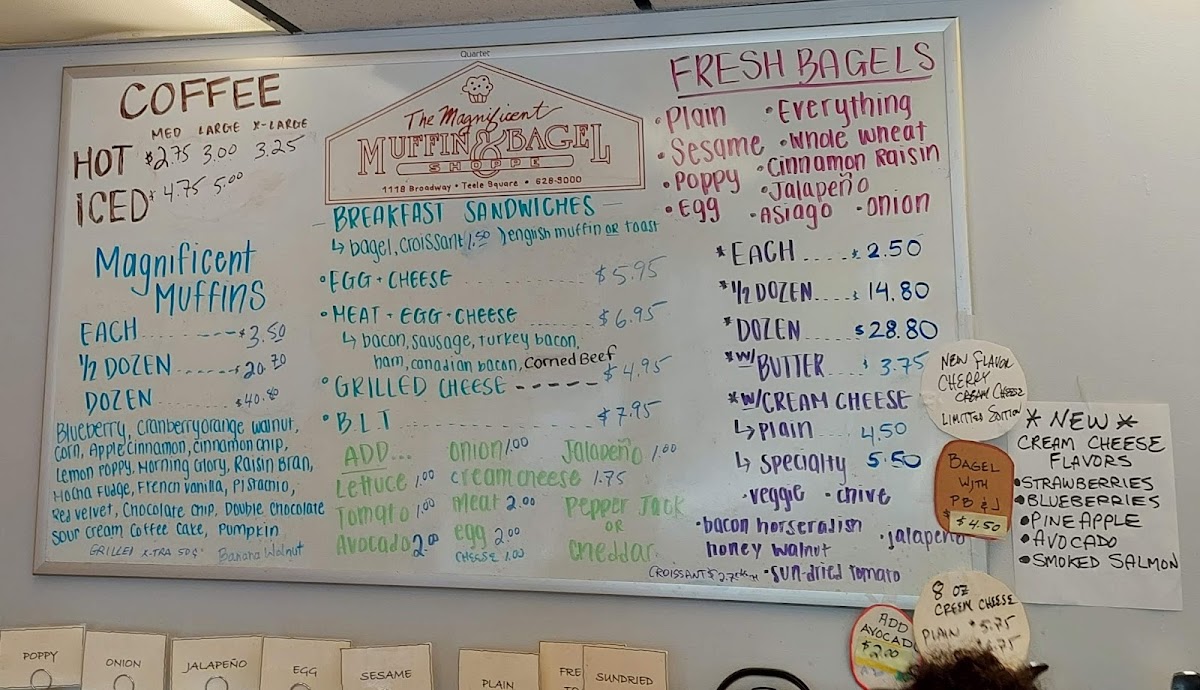 Quartet
COFFEE
MED LARGE X-LARGE
HOT $2.75 3.00 3.25
ICED $4.75 5.00
Magnificent
MUFFINS
EACH ........ $3.50
1/2 DOZEN ........ $20.70
DOZEN ........ $40.80
Blueberry, Cranberry orange walnut,
Corn, Apple cinnamon, cinnamon chip,
Lemon Poppy, Morning Glory, Raisin Bran,
Mocha Fudge, French vanilla, Pistachio,
Red velvet, Chocolate chip, Double chocolate
sour cream Coffee Cake, Pumpkin
GRILLED X-TRA 50¢ Banana Walnut
The Magnificent
MUFFIN & BAGEL
SHOPPE
1118 Broadway • Teele Square • 628-9000
- BREAKFAST SANDWICHES -
↳ bagel, croissant (1.50) english muffin OR toast
• EGG + CHEESE ........ $5.95
• MEAT + EGG + CHEESE ........ $6.95
↳ bacon, sausage, turkey bacon,
ham, canadian bacon, Corned Beef
• GRILLED CHEESE ----- $4.95
• BLT ........ $7.95
ADD... onion 1.00 Jalapeño 1.00
Lettuce 1.00 cream cheese 1.75
Tomato 1.00 meat 2.00 Pepper Jack
OR
Avocado 2.00 egg 2.00 cheddar
CHEESE 1.00
FRESH BAGELS
• Plain • Everything
• Sesame • Whole wheat
• Poppy • Cinnamon Raisin
• Jalapeño
• Egg • Asiago • onion
* EACH ..... $2.50
* 1/2 DOZEN .... $14.80
* DOZEN ..... $28.80
* W/ BUTTER ... $3.75
* W/CREAM CHEESE
↳ Plain .... 4.50
↳ Specialty . 5.50
• veggie • chive
• bacon horseradish • jalapeño
honey walnut
• sun-dried tomato
CROISSANT $2.75
NEW FLAVOR
CHERRY
CREAM CHEESE
LIMITED EDITION
BAGEL
WITH
PB & J
$4.50
* NEW *
CREAM CHEESE
FLAVORS
• STRAWBERRIES
• BLUEBERRIES
• PINEAPPLE
• AVOCADO
• SMOKED SALMON
8 OZ
CREAM CHEESE
PLAIN $5.75
ADD
AVOCADO
$2.00
POPPY
ONION
JALAPEÑO
EGG
SESAME
PLAIN
FRE
SUNDRIED